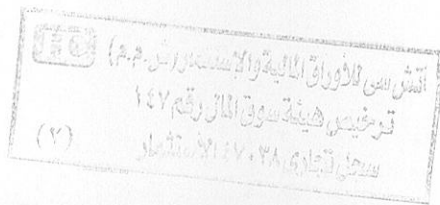 اتش سى للأوراق المالية والاستثمار (ش.م.م)
ترخيص هيئة سوق المال رقم ١٤٧
سجل تجارى ١٤٧٠٣٨ الاستثمار
(٢)